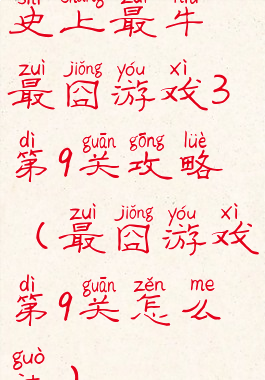 shǐ shàng zuì niú
史上最牛
zuì jiǒng yóu xì
最囧游戏3
dì guān gōng lüè
第9关攻略
zuì jiǒng yóu xì
(最囧游戏
dì guān zěn me
第9关怎么
guò
过)